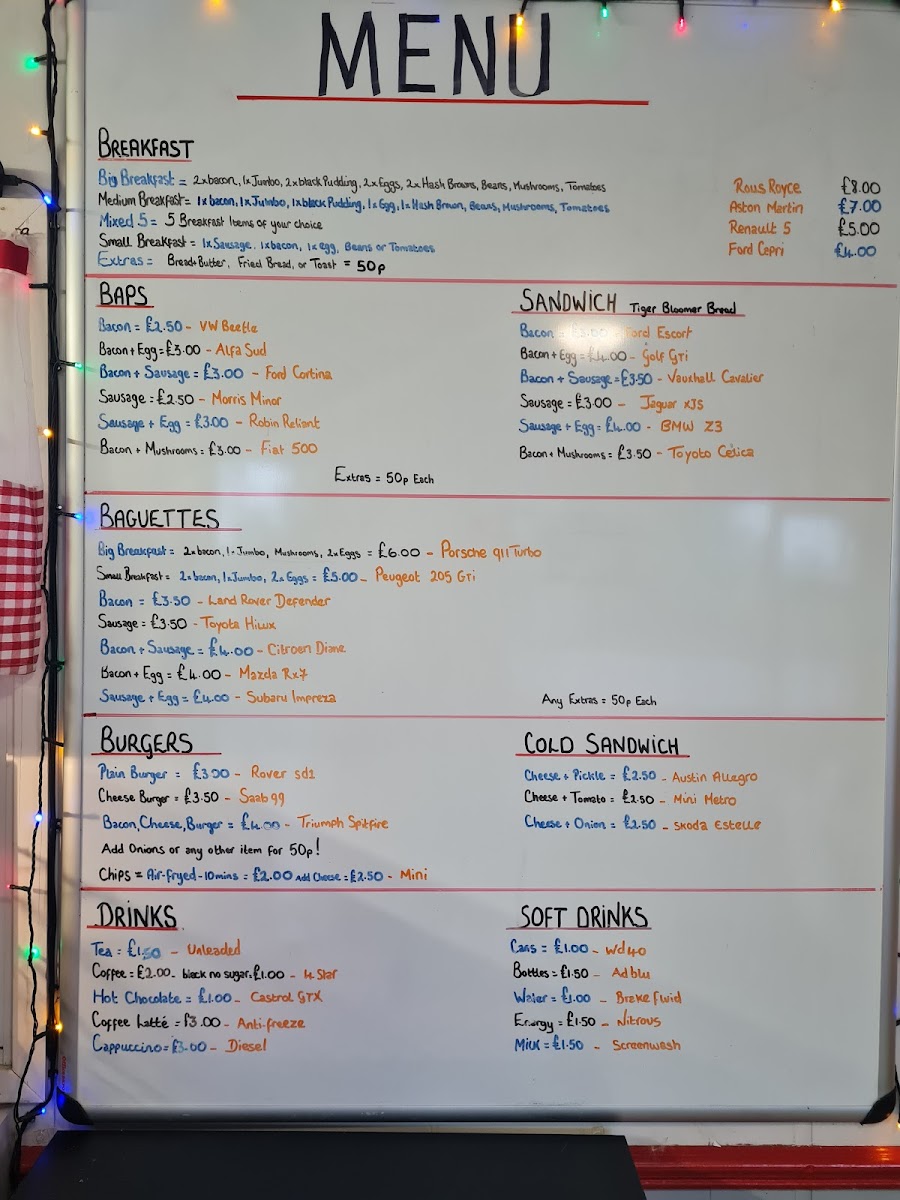 MENU
BREAKFAST
Big Breakfast = 2xbacon, 1xJumbo, 2xblack Pudding, 2xEggs, 2xHash Browns, Beans, Mushrooms, Tomatoes
Rolls Royce £8.00
Medium Breakfast = 1xbacon, 1xJumbo, 1xblack Pudding, 1xEgg, 1xHash Brown, Beans, Mushrooms, Tomatoes
Aston Martin £7.00
Mixed 5 = 5 Breakfast Items of your choice
Renault 5 £5.00
Small Breakfast = 1xSausage, 1xbacon, 1xegg, Beans or Tomatoes
Ford Cepri £4.00
Extras = Bread+Butter, Fried Bread, or Toast = 50p
BAPS
Bacon = £2.50 - VW Beetle
Bacon+Egg = £3.00 - Alfa Sud
Bacon + Sausage = £3.00 - Ford Cortina
Sausage = £2.50 - Morris Minor
Sausage + Egg = £3.00 - Robin Reliant
Bacon + Mushrooms = £3.00 - Fiat 500
SANDWICH Tiger Bloomer Bread
Bacon = Ford Escort
Bacon + Egg = £4.00 - Golf GTi
Bacon + Sausage = £3.50 - Vauxhall Cavalier
Sausage = £3.00 - Jaguar XJS
Sausage + Egg = £4.00 - BMW Z3
Bacon + Mushrooms = £3.50 - Toyota Celica
Extras = 50p Each
BAGUETTES
Big Breakfast = 2xbacon, 1xJumbo, Mushrooms, 2xEggs = £6.00 - Porsche 911 Turbo
Small Breakfast = 2xbacon, 1xJumbo, 2xEggs = £5.00 - Peugeot 205 Gti
Bacon = £3.50 - Land Rover Defender
Sausage = £3.50 - Toyota Hilux
Bacon + Sausage = £4.00 - Citroen Diane
Bacon + Egg = £4.00 - Mazda Rx7
Sausage + Egg = £4.00 - Subaru Impreza
Any Extras = 50p Each
BURGERS
Plain Burger = £3.00 - Rover sd1
Cheese Burger = £3.50 - Saab 99
Bacon, Cheese, Burger = £4.00 - Triumph Spitfire
Add Onions or any other item for 50p!
Chips = Air-fryed - 10mins = £2.00 Add Cheese = £2.50 - Mini
COLD SANDWICH
Cheese + Pickle = £2.50 - Austin Allegro
Cheese + Tomato = £2.50 - Mini Metro
Cheese + Onion = £2.50 - Skoda Estelle
DRINKS
Tea = £1.50 - Unleaded
Coffee = £2.00 - black no sugar = £1.00 - 4 Star
Hot Chocolate = £1.00 - Castrol GTX
Coffee Latté = £3.00 - Anti-freeze
Cappuccino = £3.00 - Diesel
SOFT DRINKS
Cans = £1.00 - Wd40
Bottles = £1.50 - Adblu
Water = £1.00 - Brake fluid
Energy = £1.50 - Nitrous
Milk = £1.50 - Screenwash